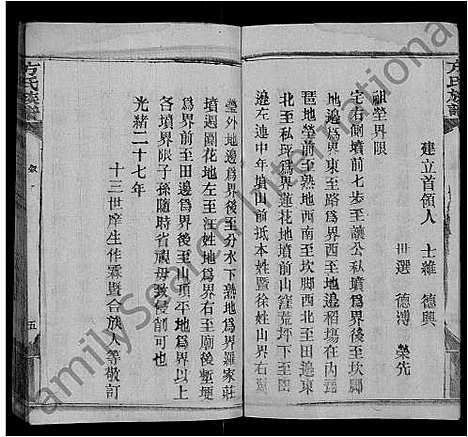 方氏族譜
建立首領人　士維　德興
世選　德溥　榮先
祖塋界限
宅右側墳前七步至讓公私墳爲界後至坎脚
地邊爲界東至路爲界西至地邊稻塲在内横
琶地塋前至熟地西南至坎脚西北至田邊東
北至私所爲界蓮花地墳前山窪荒坪下至田
邊左連中年墳山前抵本姓曁徐姓山界右
塋外地邊爲界後至分水下熟地爲界羅家莊
墳週圍花地左至汪姓地爲界右至廟後塹埂
爲界前至田邊爲界後至山頂平地爲界以上
各墳界限子孫隨時省視毋致侵削可也
光緒二十七年
十三世庠生作霖曁合族人等敬訂
方氏族譜
五
FamilySearch International